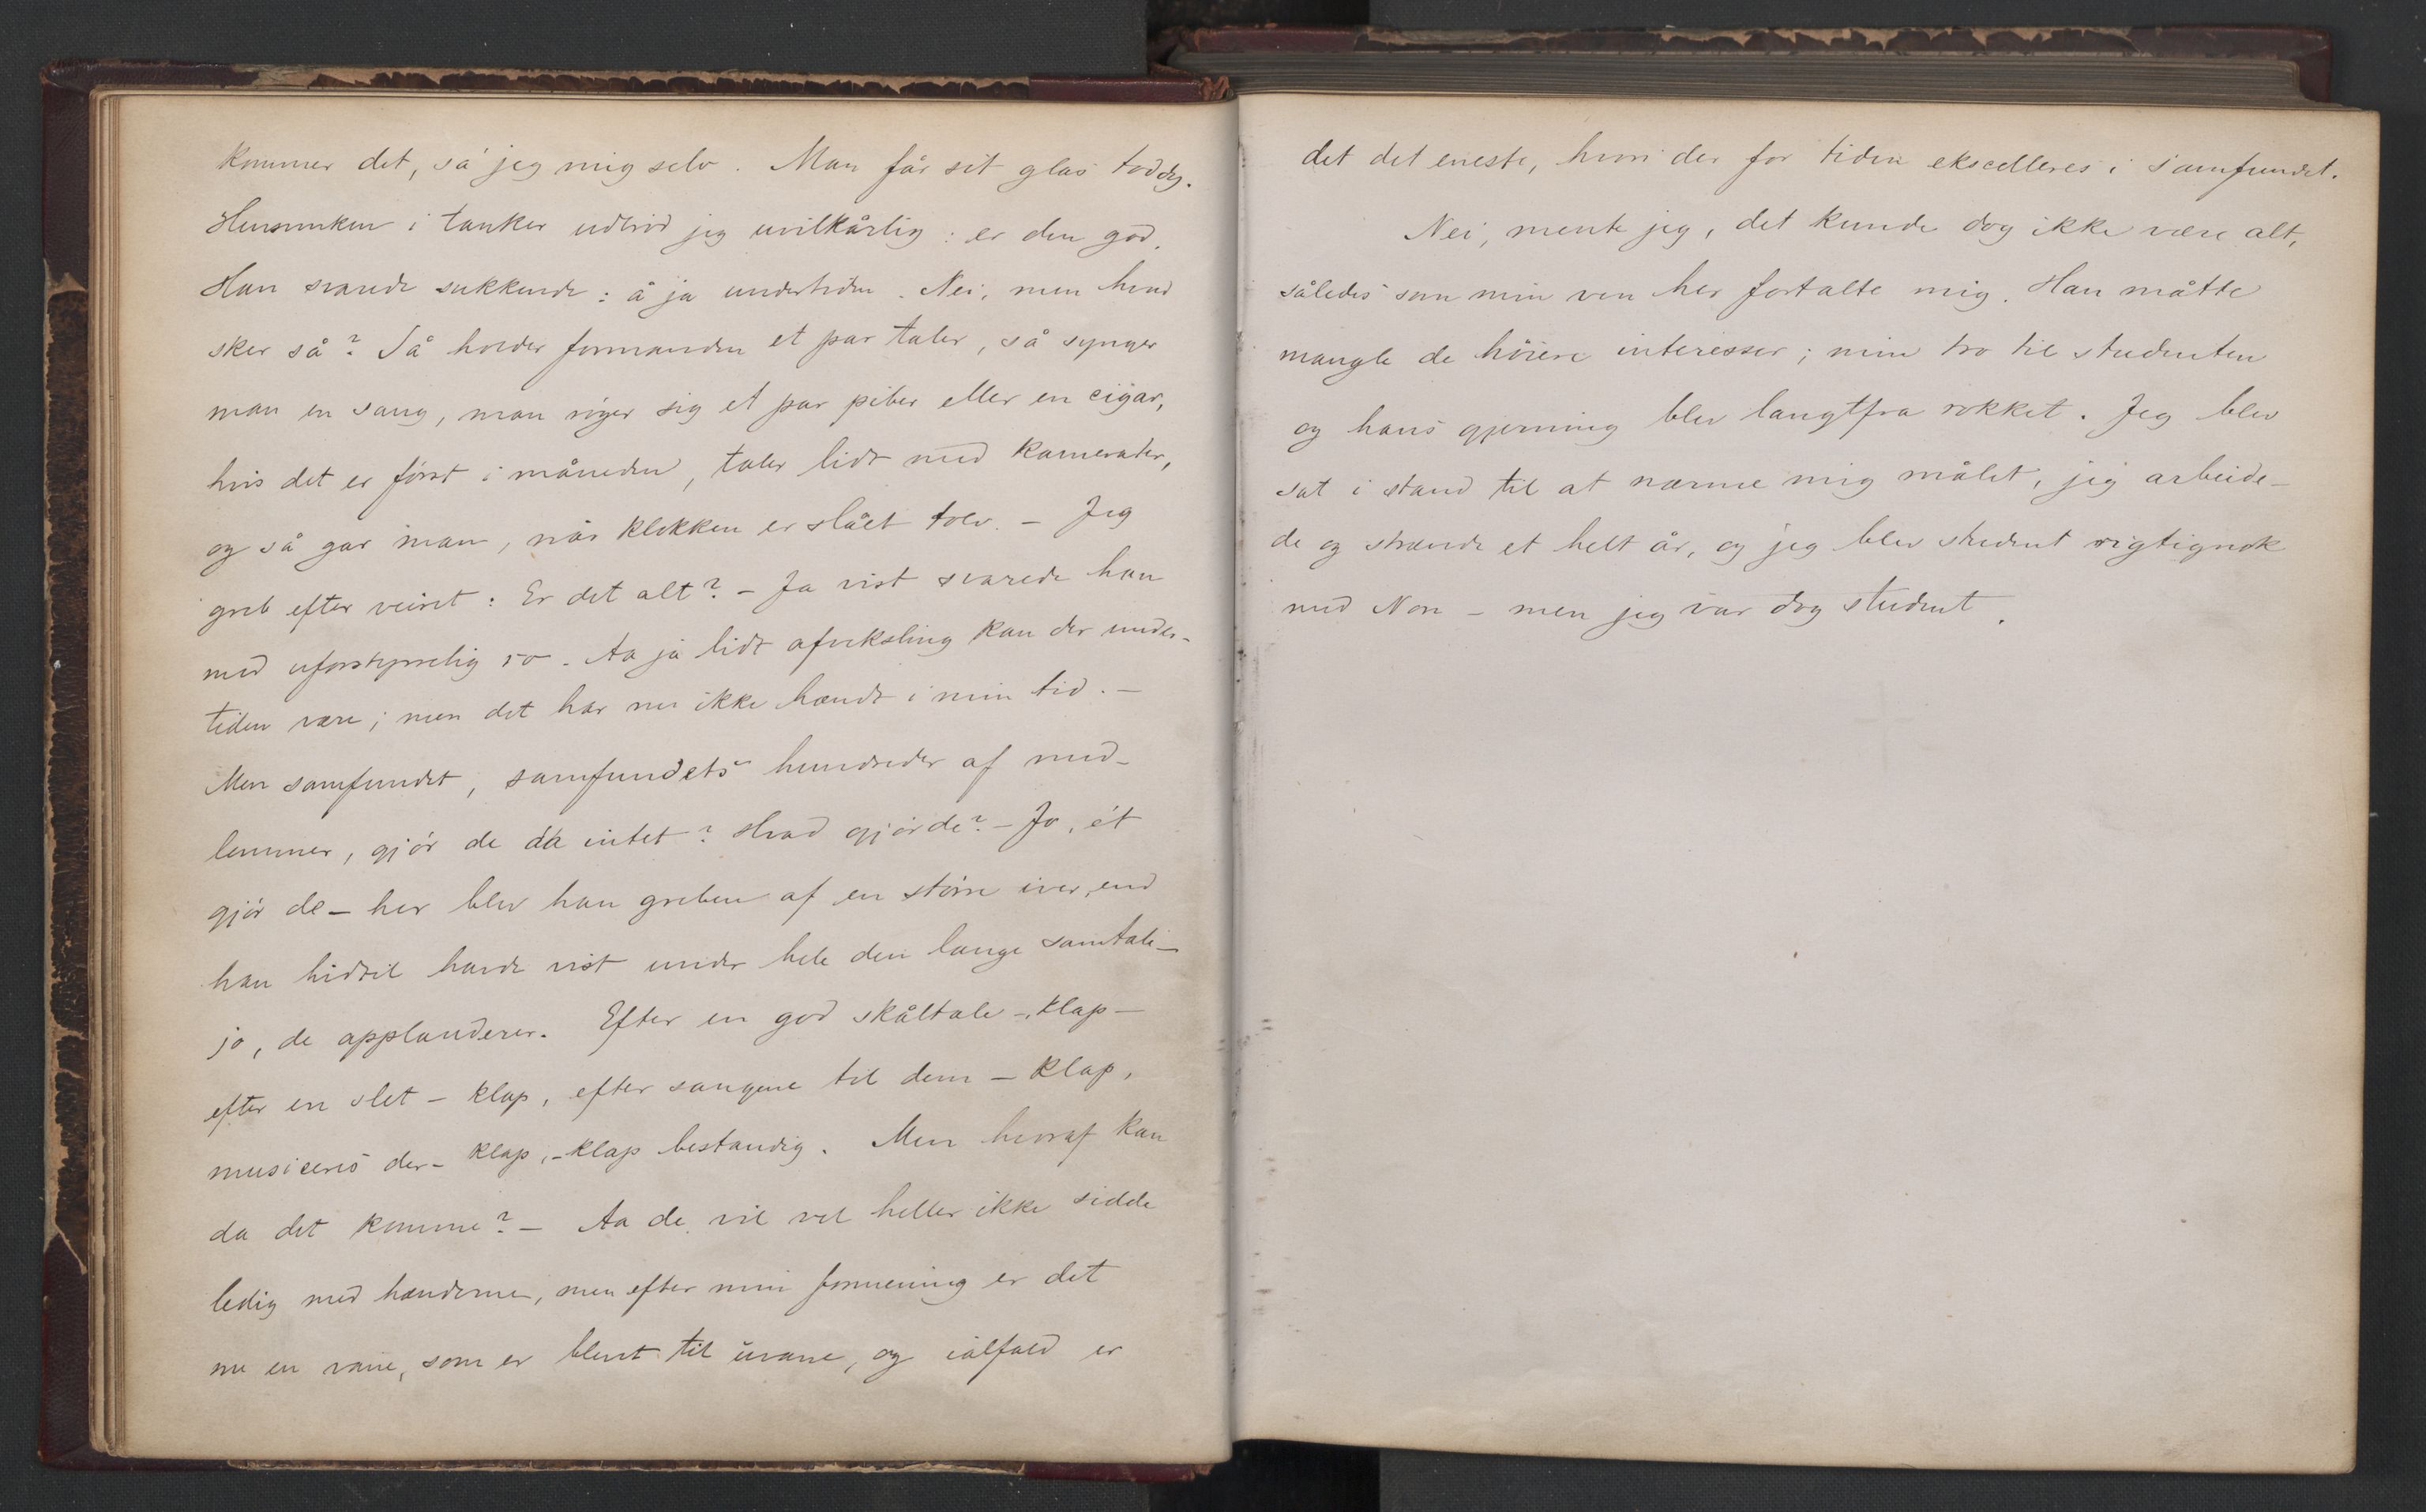 kommer det, så jeg mig selv. Man får sit glas toddy.
Hensunken i tanker udbrød jeg uvilkårlig: er den god.
Han svarede sukkende: å ja undertiden. Nei, men hvad
sker så? Så holder formanden et par taler, så synger
man en sang, man røger sig et par piber eller en cigar,
hvis det er først i måneden, taler lidt med kamerater,
og så går man, når klokken er slået tolv. – Jeg
greb efter veiret: Er det alt? – Ja vist svarede han
med uforstyrrelig ro. Aa ja lidt afveksling kan der under-
tiden være; men det har nu ikke hændt i min tid. –
Men samfundet, samfundets hundreder af med-
lemmer, gjør de da intet? Hvad gjør de? – Jo, ét
gjør de – her blev han greben af en større iver, end
han hidtil havde vist under hele den lange samtale –
jo, de applauderer. Efter en god skåltale – klap –
efter en slet – klap, efter sangene til dem – klap,
musiceres der – klap, – klap bestandig. Men hvoraf kan
da det komme? – Aa de vil vel heller ikke sidde
ledig med hænderne, men efter min formening er det
nu en vane, som er blevet til uvane, og ialfald er
det det eneste, hvori der for tiden ekscelleres i samfundet.
Nei, mente jeg, det kunde dog ikke være alt,
således som min ven her fortalte mig. Han måtte
mangle de høiere interesser; min tro til studenten
og hans gjerning blev langtfra rokket. Jeg blev
sat i stand til at nærme mig målet, jeg arbeide-
de og strævede et helt år, og jeg blev student rigtignok
med Non – men jeg var dog student.